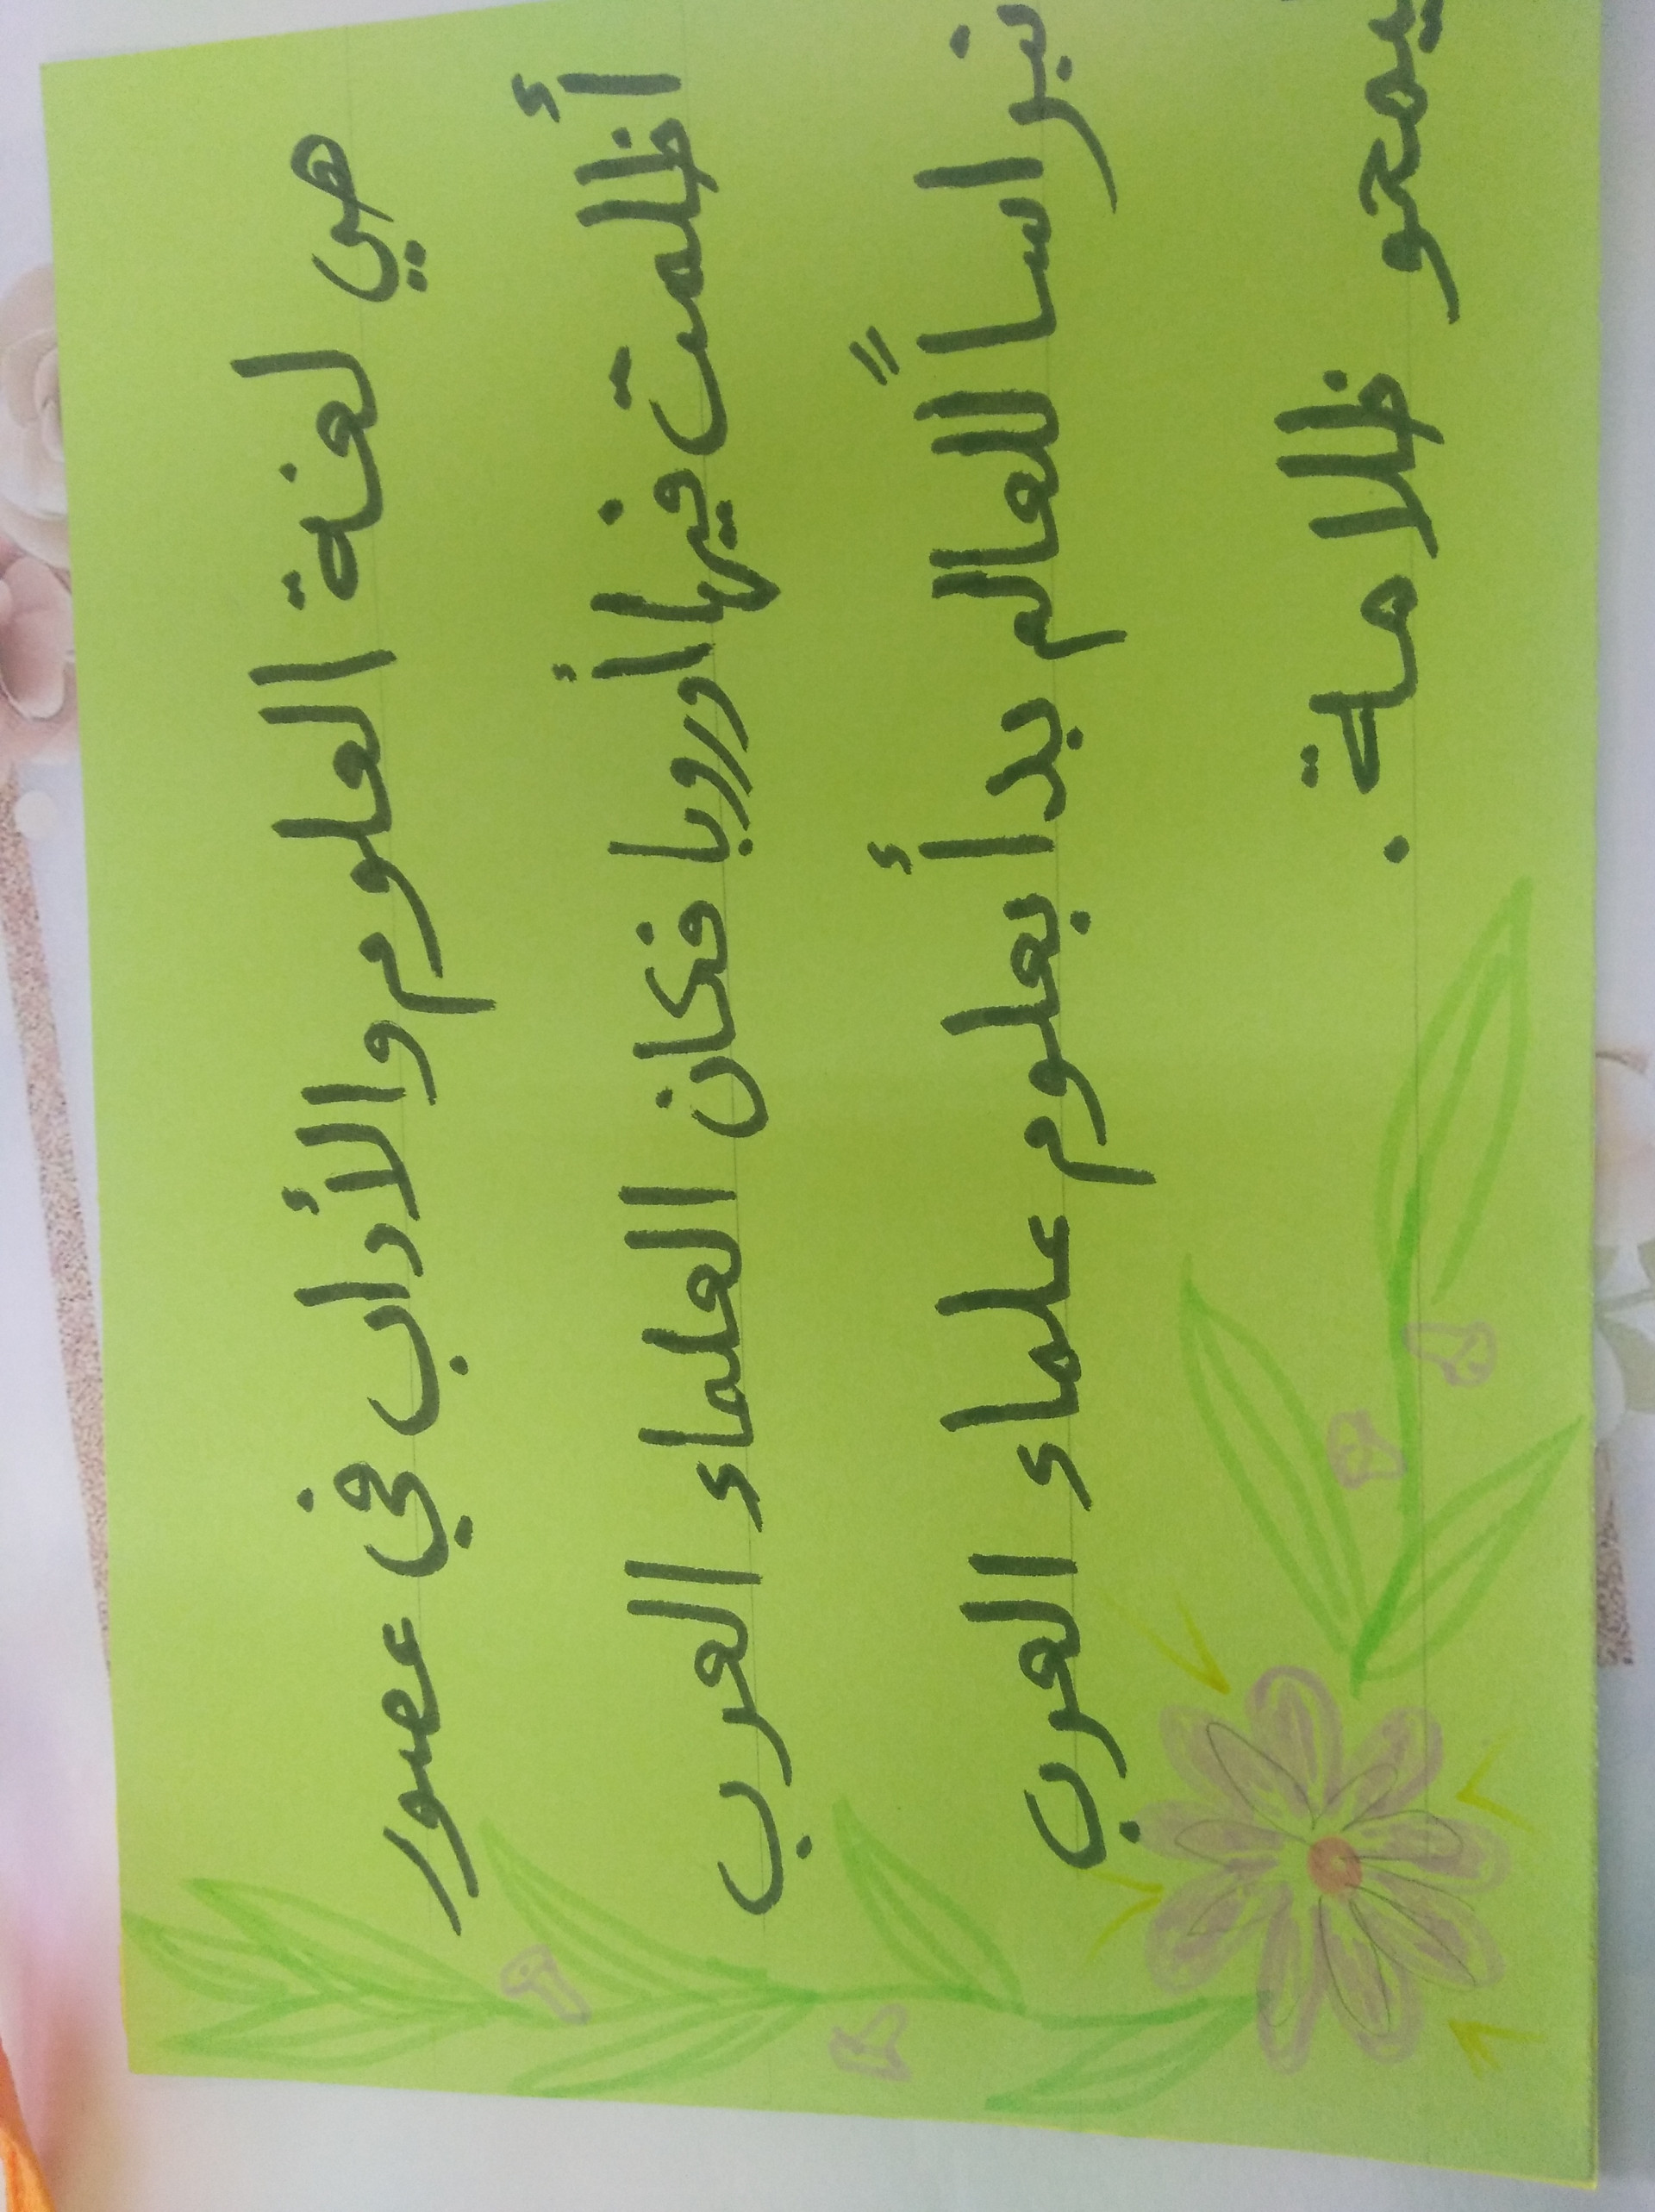 هي لغة العلوم والأداب في عصور
أظلمت فيها أوروبا فكان العلماء العرب
نبراساً للعالم بدأ بعلوم علماء العرب
يمحو ظلامة .